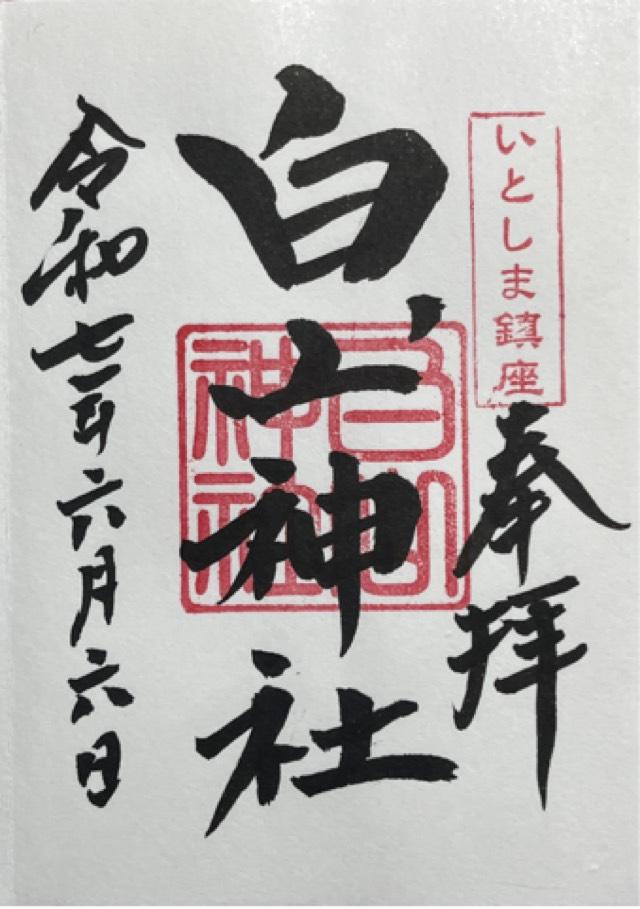 いとしま鎮座
奉拝
白山神社
白山神社
令和七年六月六日